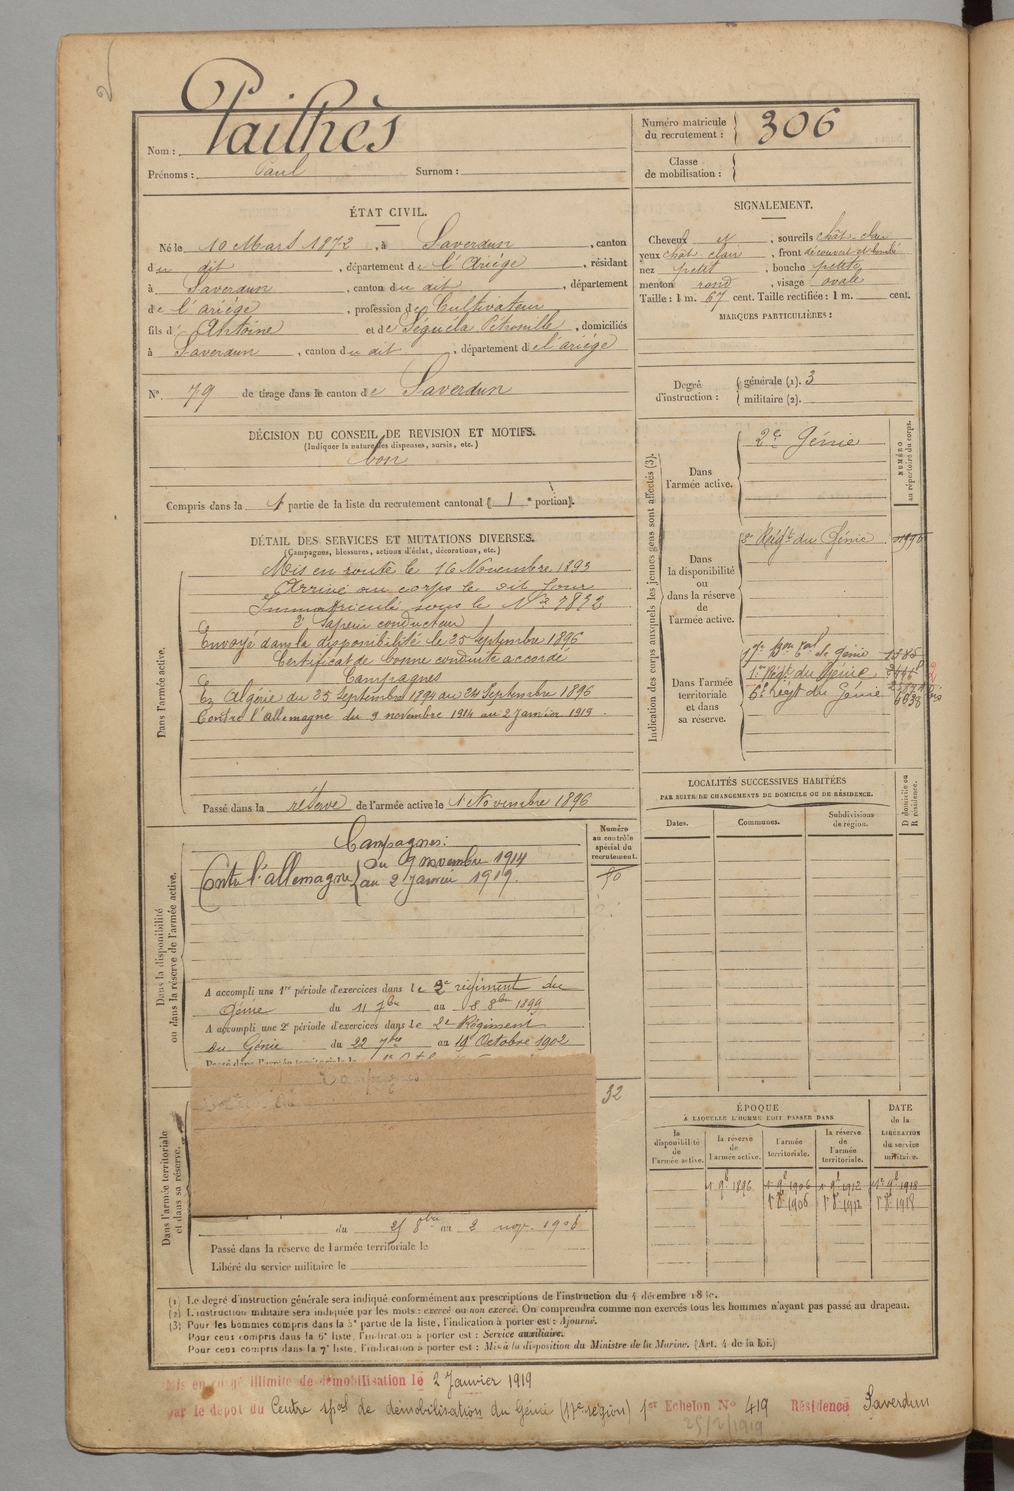 Nom : Pailhès
Prénoms : Paul Surnom :
Numéro matricule du recrutement : 306
Classe de mobilisation :
ÉTAT CIVIL.
Né le 10 Mars 1872, à Saverdun, canton
du dit, département de l'Ariége, résidant
à Saverdun, canton du dit, département
de l'ariége, profession de Cultivateur
fils d' Antoine et de Séguéla Pétronille, domiciliés
à Saverdun, canton du dit, département de l'ariége
N° 79 de tirage dans le canton de Saverdun
DÉCISION DU CONSEIL DE REVISION ET MOTIFS.
(Indiquer la nature des dispenses, sursis, etc.)
bon
Compris dans la 1 partie de la liste du recrutement cantonal (1e portion).
SIGNALEMENT.
Cheveux et, sourcils chât. clair
yeux chât. clair, front découvert et bombé
nez petit, bouche petite
menton rond, visage ovale
Taille : 1 m. 67 cent. Taille rectifiée : 1 m. cent.
MARQUES PARTICULIÈRES :
Degré d'instruction : générale (1). 3
militaire (2).
DÉTAIL DES SERVICES ET MUTATIONS DIVERSES.
(Campagnes, blessures, actions d'éclat, décorations, etc.)
Dans l'armée active.
Mis en route le 16 Novembre 1893
Arrivé au corps le dit Jour
Immatriculé sous le N° 7832
2e Sapeur conducteur
Envoyé dans la disponibilité le 25 Septembre 1896
Certificat de bonne conduite accordé
Campagnes
En Algérie du 25 Septembre 1894 au 24 Septembre 1896
Contre l'allemagne du 9 novembre 1914 au 2 Janvier 1919.
Passé dans la réserve de l'armée active le 1 Novembre 1896
Dans la disponibilité ou dans la réserve de l'armée active.
Campagnes :
Contre l'allemagne du 9 novembre 1914
au 2 Janvier 1919.
Numéro au contrôle spécial du recrutement.
A accompli une 1re période d'exercices dans le 2e régiment du
Génie du 11 7bre au 8 8bre 1899
A accompli une 2e période d'exercices dans le 2e Régiment
du Génie du 22 7bre au 19 Octobre 1902
Campagnes
32
Dans l'armée territoriale et dans sa réserve.
du 25 8bre au 2 nov. 1908
Passé dans la réserve de l'armée territoriale le
Libéré du service militaire le
Indication des corps auxquels les jeunes gens sont affectés (3).
NUMÉRO au répertoire du corps.
Dans l'armée active.
2e Génie
Dans la disponibilité ou dans la réserve de l'armée active.
2e Régt du Génie
Dans l'armée territoriale et dans sa réserve.
17e Bon Tal de Génie
1er Régt du Génie
6e Régt du Génie
LOCALITÉS SUCCESSIVES HABITÉES
PAR SUITE DE CHANGEMENTS DE DOMICILE OU DE RÉSIDENCE.
Dates. Communes. Subdivisions de région.
D domicile ou R résidence.
ÉPOQUE
A LAQUELLE L'HOMME DOIT PASSER DANS
la disponibilité de l'armée active. la réserve de l'armée active. l'armée territoriale. la réserve de l'armée territoriale.
DATE de la LIBÉRATION du service militaire.
1 9bre 1896 1 9bre 1906 1 9bre 1912 1er 9bre 1918
1er 8bre 1906 1er 8bre 1912 1er 8bre 1918
(1) Le degré d'instruction générale sera indiqué conformément aux prescriptions de l'instruction du 4 décembre
(2) L'instruction militaire sera indiquée par les mots : exercé ou non exercé. On comprendra comme non exercés tous les hommes n'ayant pas passé au drapeau.
(3) Pour les hommes compris dans la 5e partie de la liste, l'indication à porter est : Ajourné.
Pour ceux compris dans la 6e liste, l'indication à porter est : Service auxiliaire.
Pour ceux compris dans la 7e liste, l'indication à porter est : Mis à la disposition du Ministre de la Marine. (Art. 4 de la loi.)
Mis en congé illimité de démobilisation le 2 Janvier 1919
par le dépôt du Centre spal de démobilisation du Génie (17e région) 1er Echelon N° 419 Résidence Saverdun
25/2/1919